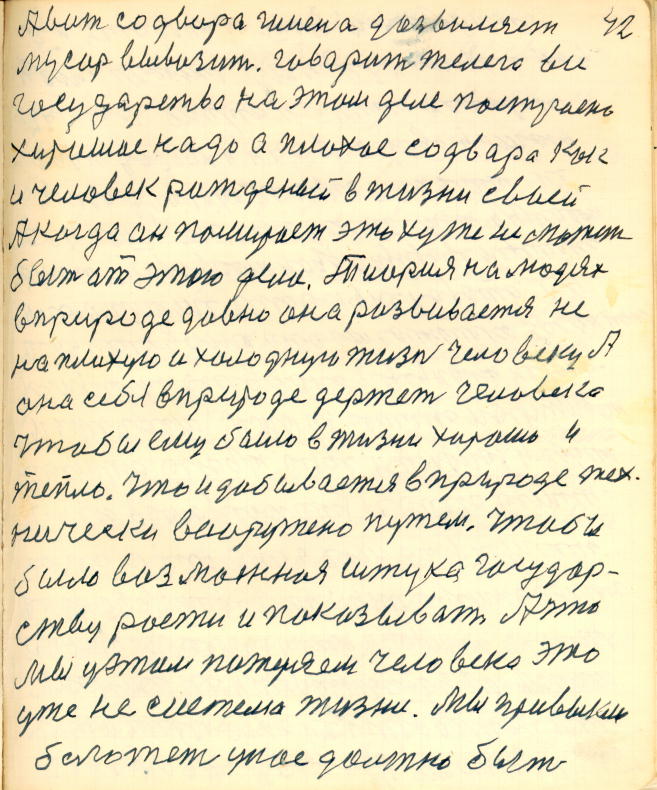 Авот содвора имена дазволяет 42
мусор вывозит. говарит телега вы
государство на этом деле построено
хорошое надо а плохое содвара как
и человек рожденый в жизни своей
А когда он помирает это хуже неможет
быт ат этого дела. Тиория на людях
в природе давно она развивается не
на плохую и холодную жизн человеку А
она себя в природе держет человека
чтобы ему было в жизни хорошо и
тепло. что и добывается в природе тех.
нически вааружено путем. чтобы
было возможная штука государ-
ству рости и показыват. А что
мы уэтом потеряем человека это
уже не система жизни. Мы привыкли
должно быт